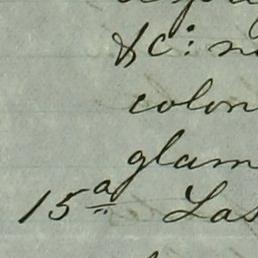 &c: n
colon
glam
15ª Las